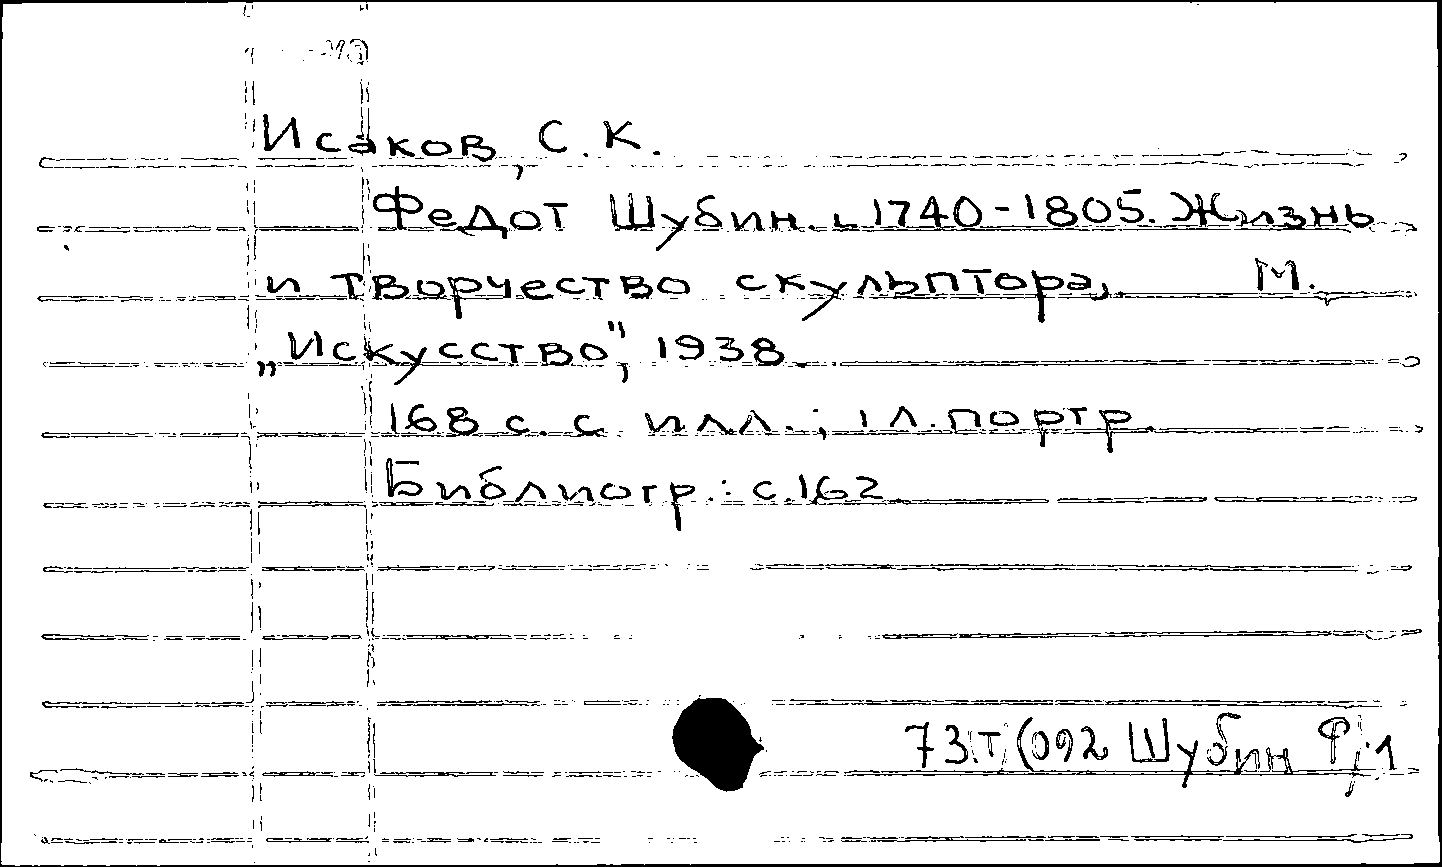 Исаков, С. К.
Федот Шубин. 1740-1805. Жизнь
и творчество скульптора, М.
„Искусство", 1938.
168 с. с илл.; 1 л. портр.
Библиогр.: с. 162.
73.Т(092 Шубин Ф).1